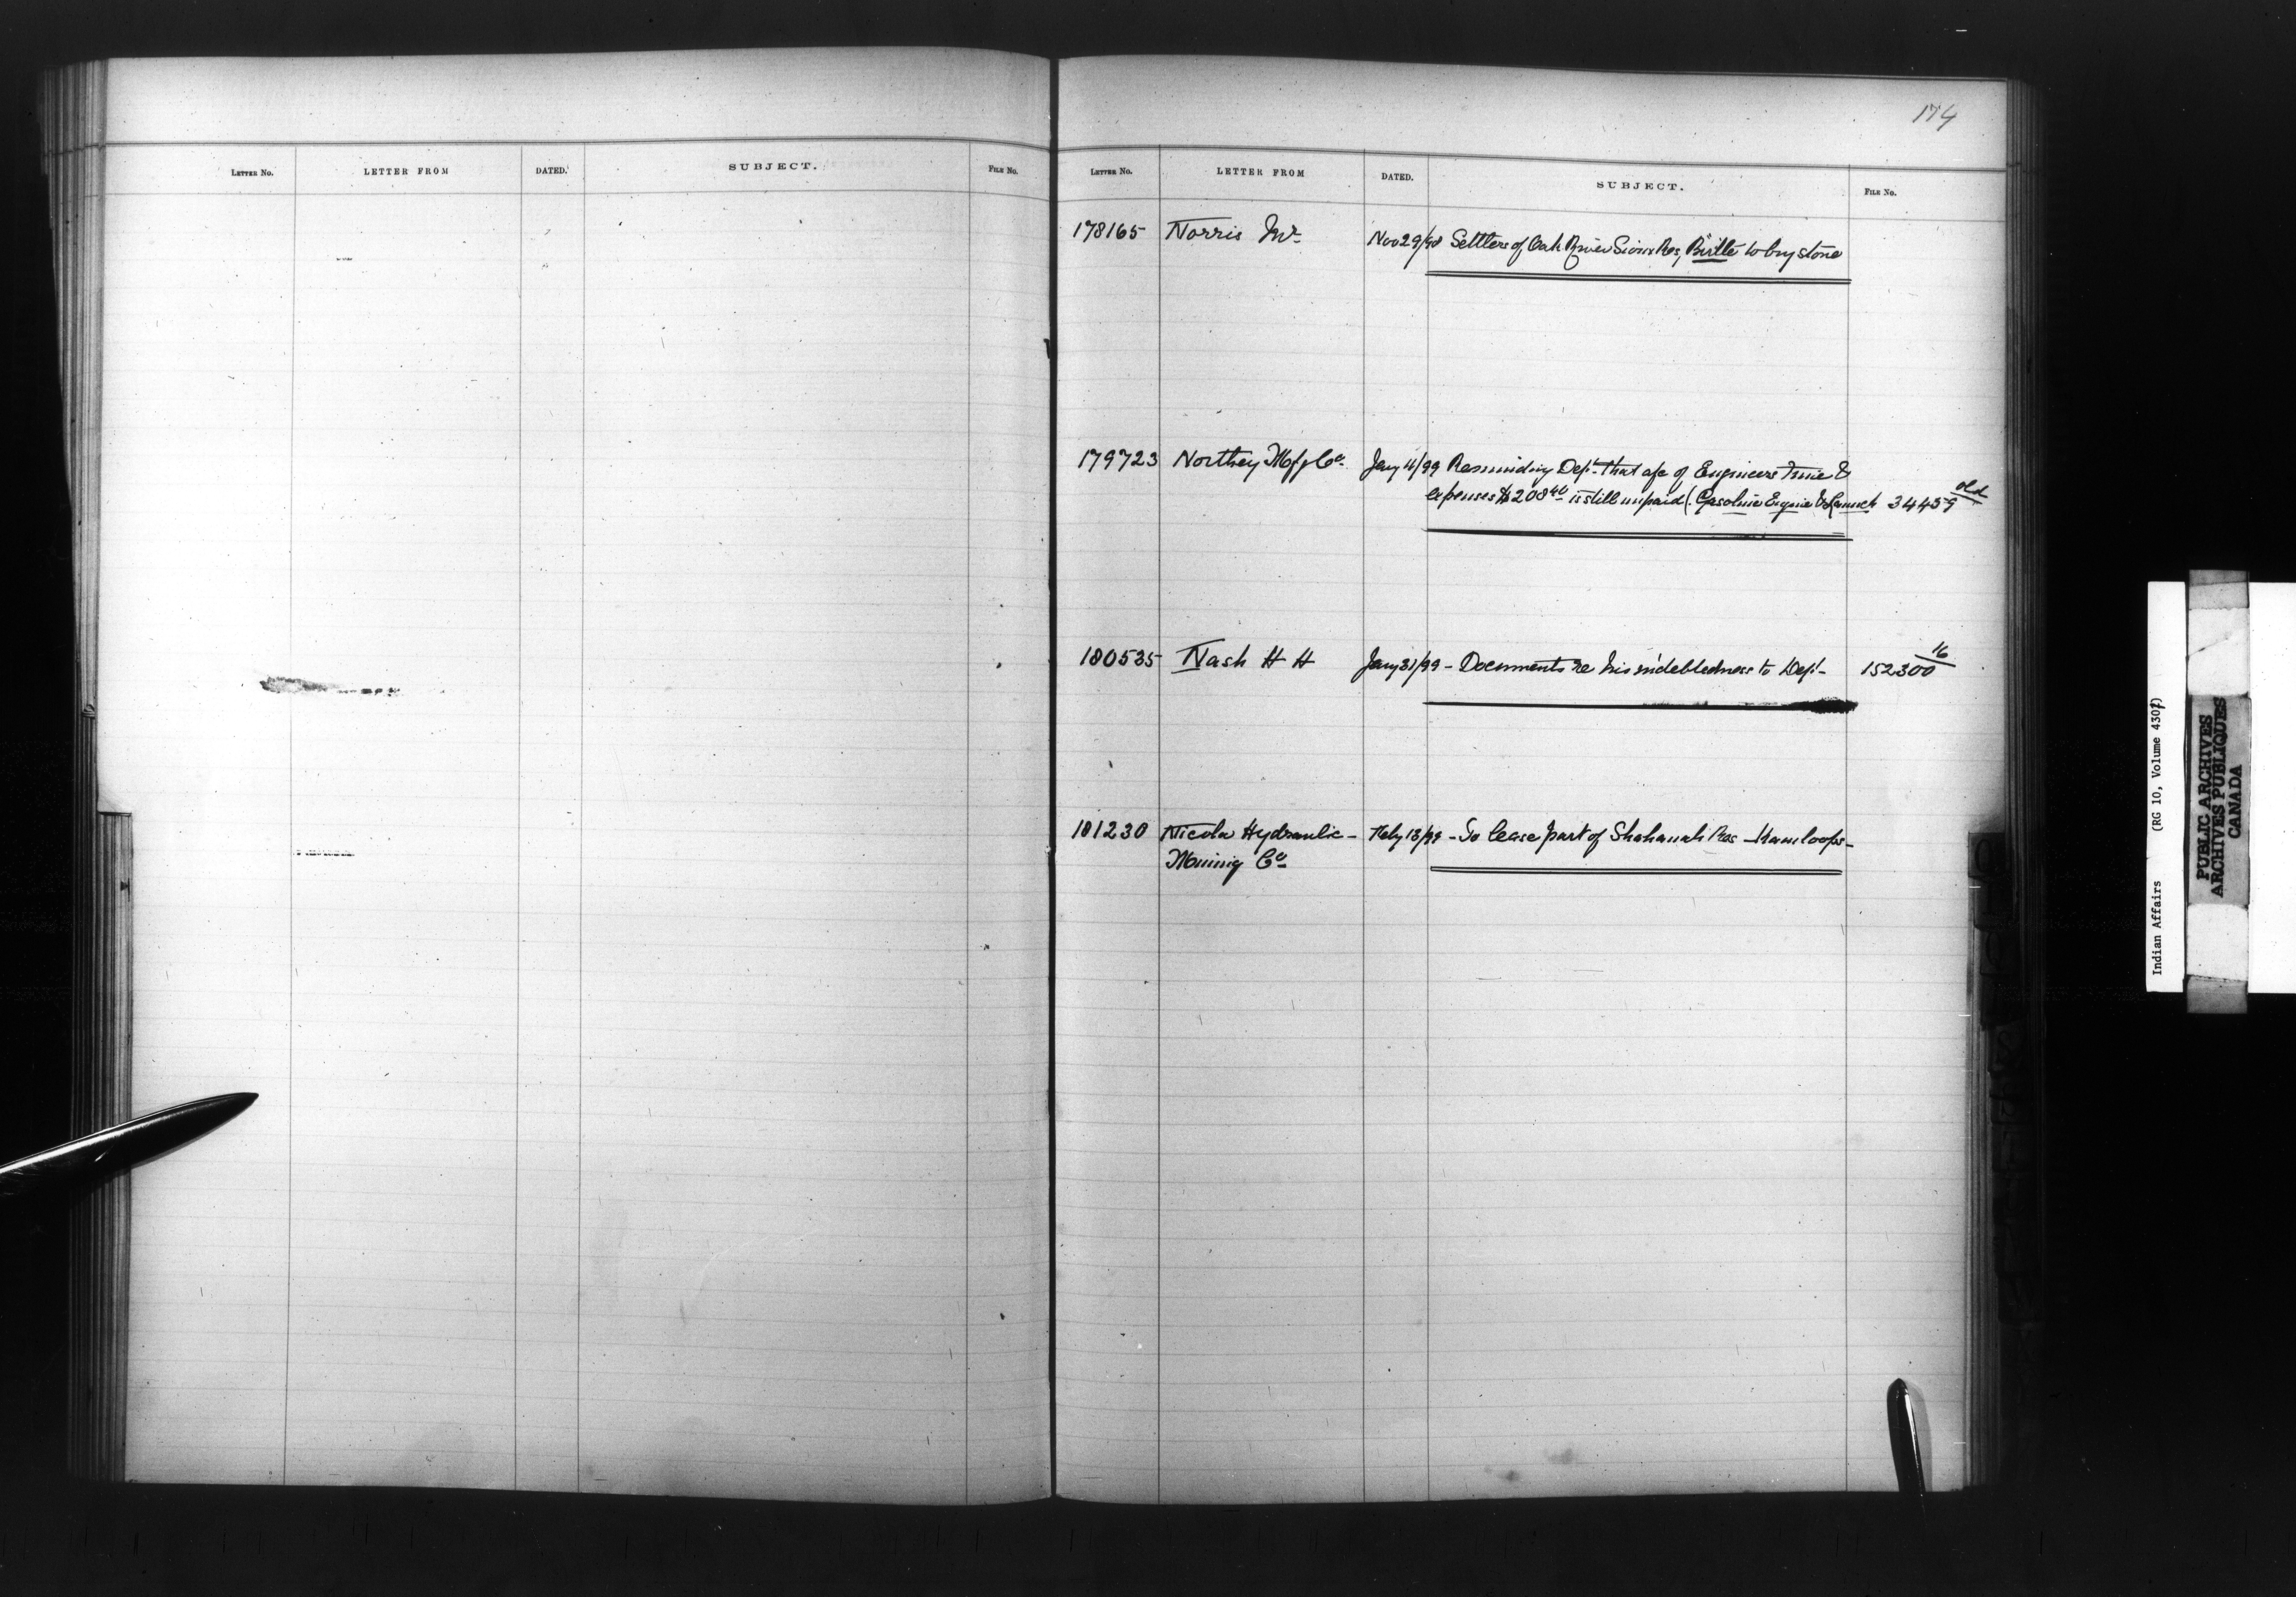 LETTER NO. LETTER FROM DATED. SUBJECT. FILE NO.
174
LETTER NO. LETTER FROM DATED. SUBJECT. FILE NO.
178165 Norris Mr Nov 29/98 Settlers of Oak River Sioux Res, Birtle to buy stone
179723 Northey Mfg Co Jany 11/99 Reminding Dept that a/c of Engineers time &
expenses $208 40 is still unpaid (Gasoline Engine & Launch 34459 old
180535 Nash H H Jany 31/99 - Documents re his indebtedness to Dept - 152300 16
181230 Nicola Hydraulic - Feby 18/99 - To lease part of Shahanah Res - Kamloops -
Mining Co
Indian Affairs (RG 10, Volume 4302)
PUBLIC ARCHIVES
ARCHIVES PUBLIQUES
CANADA